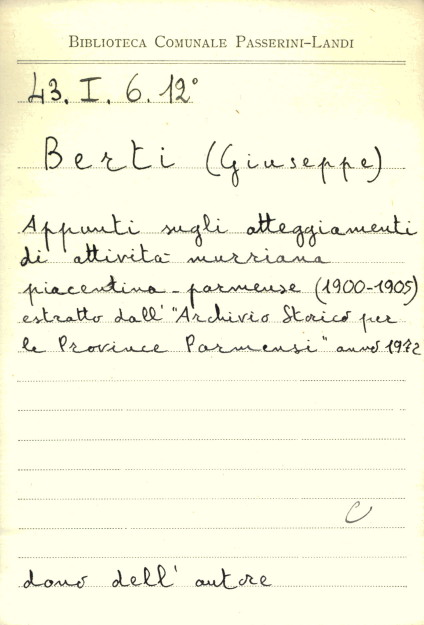 BIBLIOTECA COMUNALE PASSERINI-LANDI
43. I. 6. 12°
Berti (Giuseppe)
Appunti sugli atteggiamenti
di attività murriana
piacentina - parmense (1900-1905)
estratto dall' "Archivio Storico per
le Province Parmensi" anno 1972
C
dono dell' autore